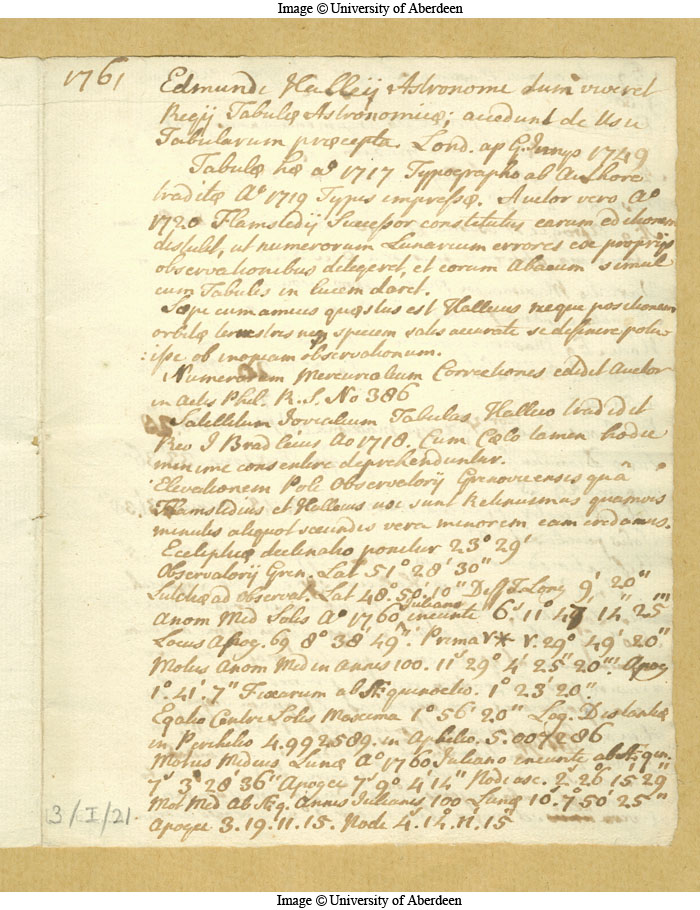 Image © University of Aberdeen
1761 Edmundi Halleij Astronomi dum viveret
Regij Tabulæ Astronomicæ; accedunt de Usu
Tabularum præcepta. Lond. ap G. Innys 1749
Tabulæ hæ aº 1717 Typographo ab Authore
traditæ Aº 1719 Typis impressæ. Auctor vero Aº
1720 Flamstedij Successor constitutus earum editionem
distulit, ut numerorum Lunarium errores ex proprijs
observationibus detegeret, et eorum Abacum simul
cum Tabulis in lucem daret.
Sæpe cum amicis questus est Halleius neque positionem
orbitæ terrestris neq speciem satis accurate se definire
ipse ob inopiam observationum.
Numerorum Mercurialium Correctiones edidit Auctor
in Actis Phil. R. S. No 386
Satellitum Jovialium Tabulas Halleio tradidit
Rev J Bradleius Ao 1718. Cum Cælo tamen hodie
minime consentire deprehenduntur.
Elevationem Poli Observatorij Grenovicensis quâ
Flamstedius et Halleius usi sunt Retinuimus quamvis
minutis aliquot secundis vera minorem eam credamus.
Eclipticæ declinatio ponitur 23º 29'
Observatorij Gren. Lat 51º 28' 30"
Lutetiæ ad observat. Lat 48º 50' 10" Diff Long 9' 20"
Anom Med Solis Aº 1760 Juliano ineunte 6s 11º 47 14" 25'''
Locus Apog. 69 8º 38' 49". Prima ♈ * ♈. 29º 49' 20"
Motus Anom Med in Annis 100. 11s 29º 4' 25" 20'''. Apog
1º. 41'. 7" Fixarum ab Æquinoctio. 1º 23' 20"
Eqatio Centri Solis Maxima 1º 56' 20" Log. Distantiæ
in Perihelio 4.992589. in Aphelio. 5.007286
Motus Medius Lunæ Aº 1760 Juliano ineunte ab Æquin.
7s 3º 28' 36" Apogei 7s 9º 4' 14" Nod asc. 2s 26º 15' 29"
Mot Med Ab Æq. Annis Julianis 100 Lunæ 10s. 7º 50' 25"
Apogei 3. 19. 11. 15. Nodi 4s. 14º. 11. 15"
3/I/21
Image © University of Aberdeen